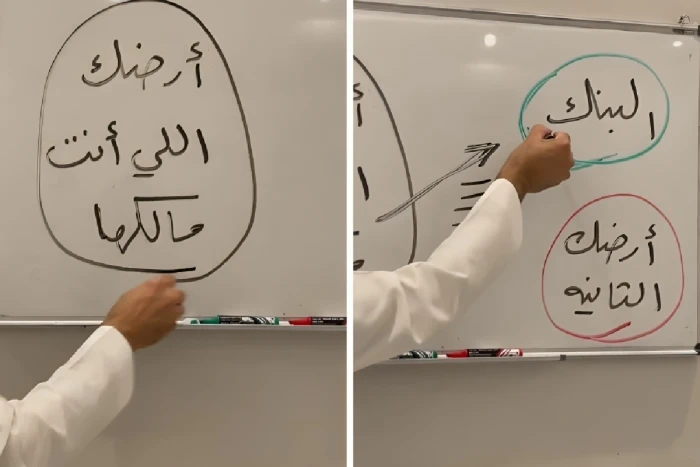 أرضك
اللي أنت
مالكها
البنك
أرضك
الثانيه